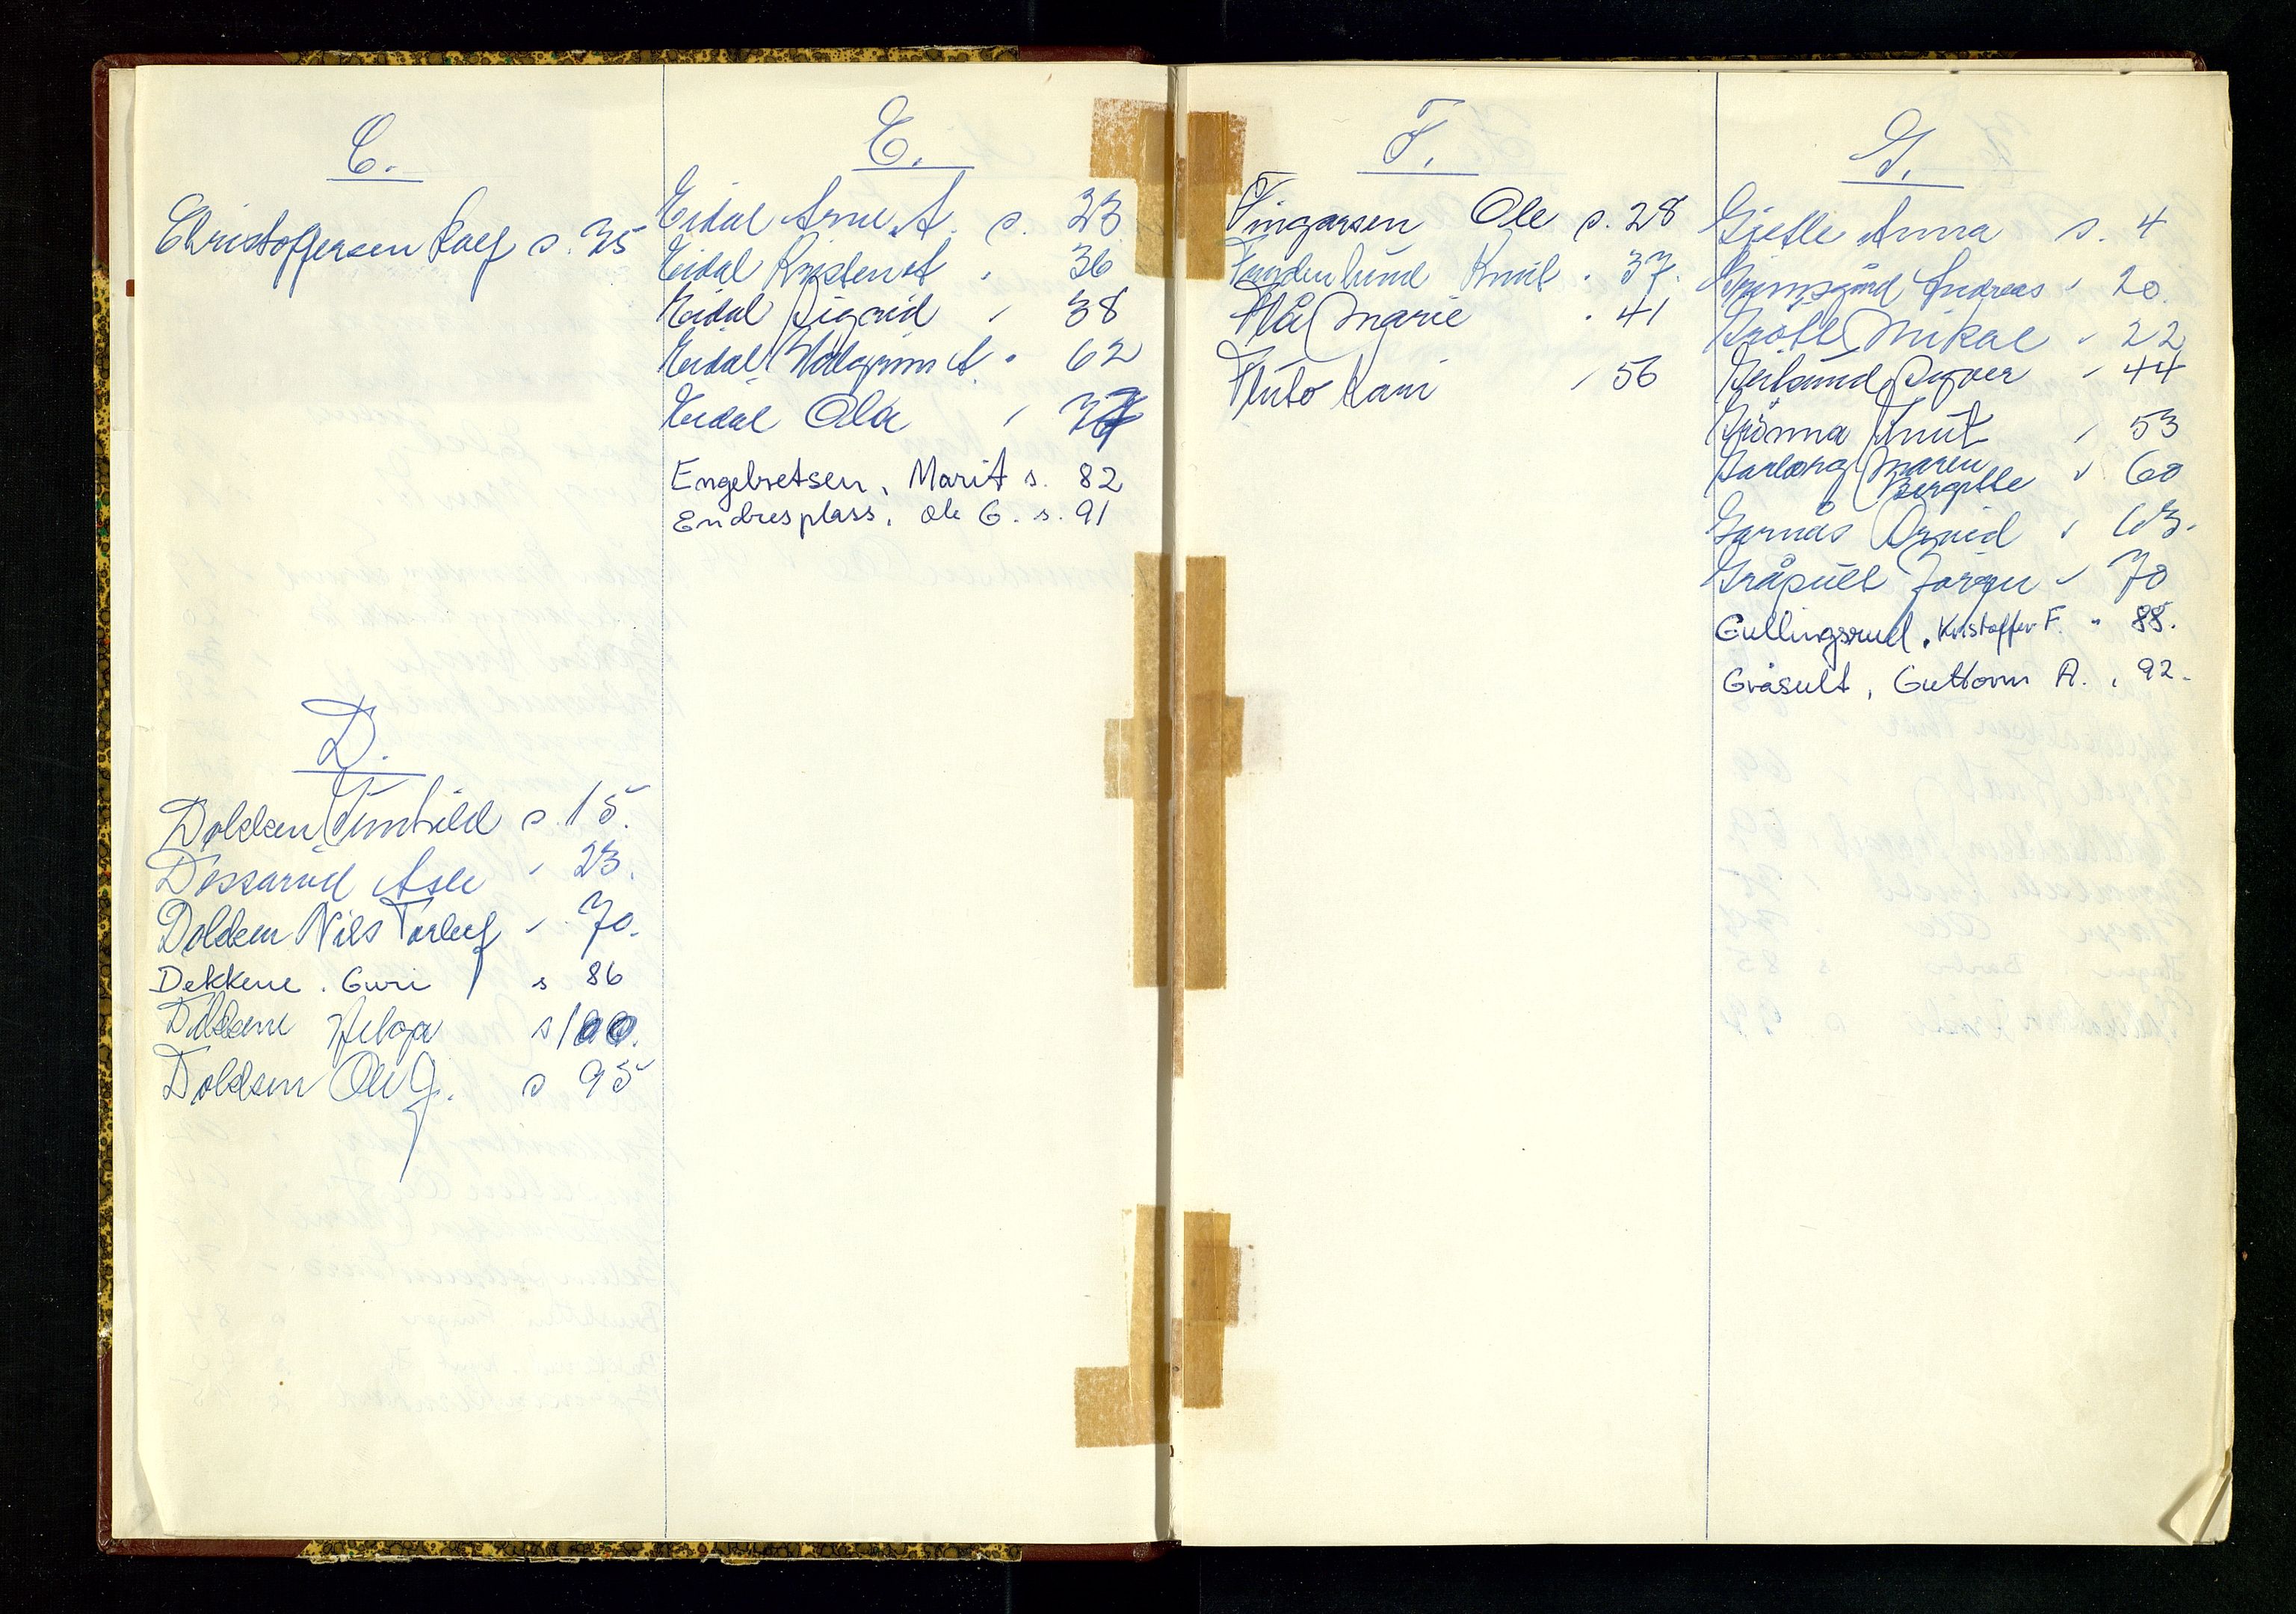 C.
Christoffersen Ralf s. 35
D.
Dokken Gunhild s. 15.
Dossarud Asle " 23.
Dokken Nils Torleif " 70.
Dekkene . Guri s 86
Dekkene Helga s 100.
Dokken Ole G. s 95
E.
Eidal Arne A. s. 23
Eidal Kristen A " 36
Eidal Sigrid " 38
Eidal Hallgrim A. " 62
Eidal Ola "
Engebretsen, Marit s. 82
Endresplass, Ole G. s. 91
F.
Fingarsen Ole s. 28
Knut " 37.
Flå Marie " 41
Kari " 56
G.
Gjetle Anna s. 4
Grimsgård Andreas " 20.
Mikal " 22
Syver " 44
Grönna Knut " 53
Garberg Maren
Bergitte " 60
Garnås Arvid " 63.
Gråsult Jörgen " 70
Gullingsrud, Kristoffer F. " 88.
Gråsult, Guttorm A. " 92.